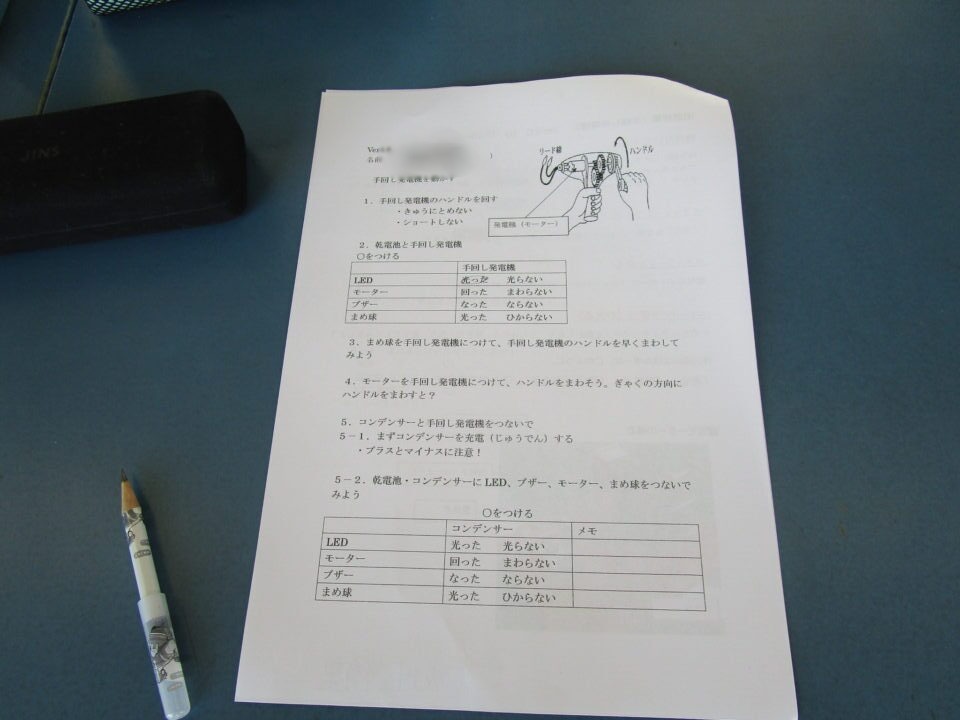 JINS
Ver
名前 )
リード線 ハンドル
手回し発電機を動かす
1．手回し発電機のハンドルを回す
・きゅうにとめない
・ショートしない
発電機（モーター）
2．乾電池と手回し発電機
○をつける
手回し発電機
LED 光った 光らない
モーター 回った まわらない
ブザー なった ならない
まめ球 光った ひからない
3．まめ球を手回し発電機につけて、手回し発電機のハンドルを早くまわして
みよう
4．モーターを手回し発電機につけて、ハンドルをまわそう。ぎゃくの方向に
ハンドルをまわすと？
5．コンデンサーと手回し発電機をつないで
5－1．まずコンデンサーを充電（じゅうでん）する
・プラスとマイナスに注意！
5－2．乾電池・コンデンサーに LED、ブザー、モーター、まめ球をつないで
みよう
○をつける
コンデンサー メモ
LED 光った 光らない
モーター 回った まわらない
ブザー なった ならない
まめ球 光った ひからない